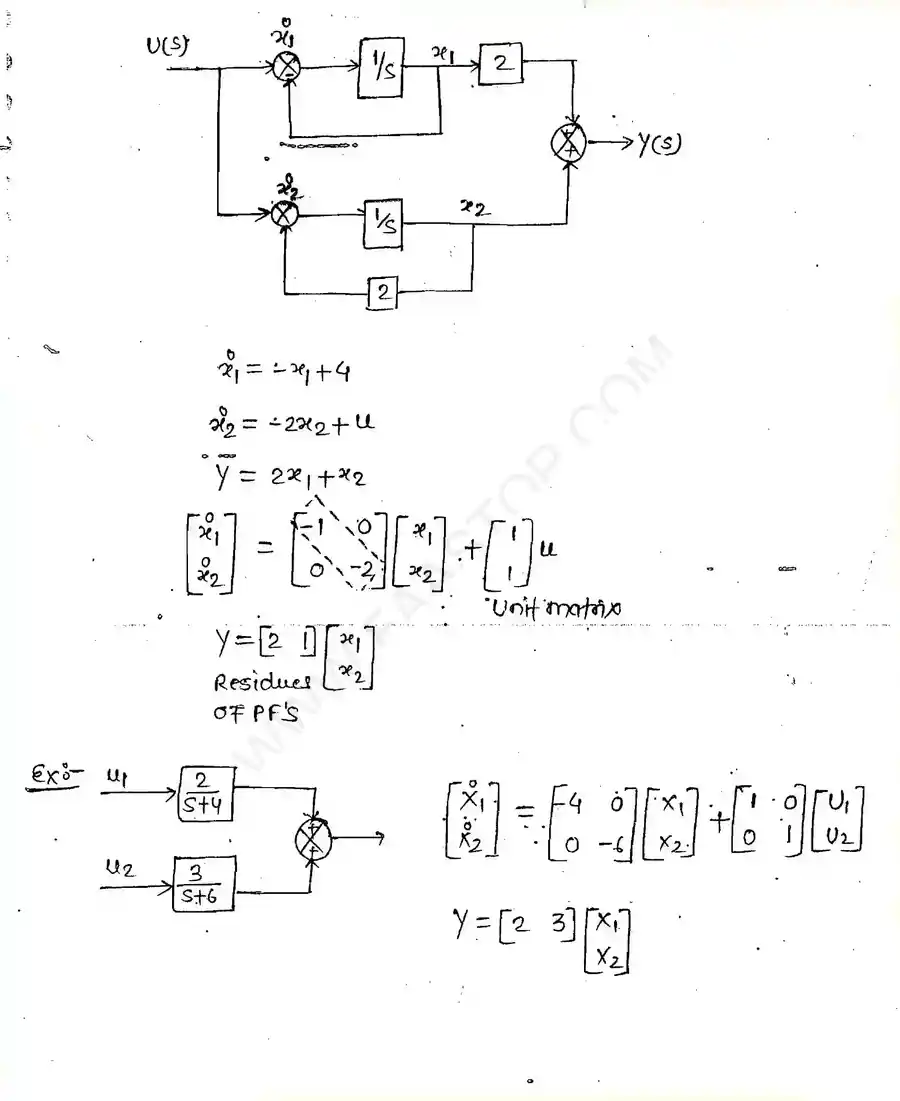 U(S) ẋ1 1/S x1 2
Y(S)
ẋ2 1/S x2
2
ẋ1 = -x1 + 4
ẋ2 = -2x2 + u
Y = 2x1 + x2
[ẋ1 ẋ2] = [-1 0 0 -2] [x1 x2] + [1 1] u
Unit matrix
Y = [2 1] [x1 x2]
Residues
OF PF'S
Ex:- u1 2/(S+4)
u2 3/(S+6)
[Ẋ1 Ẋ2] = [-4 0 0 -6] [X1 X2] + [1 0 0 1] [U1 U2]
Y = [2 3] [X1 X2]